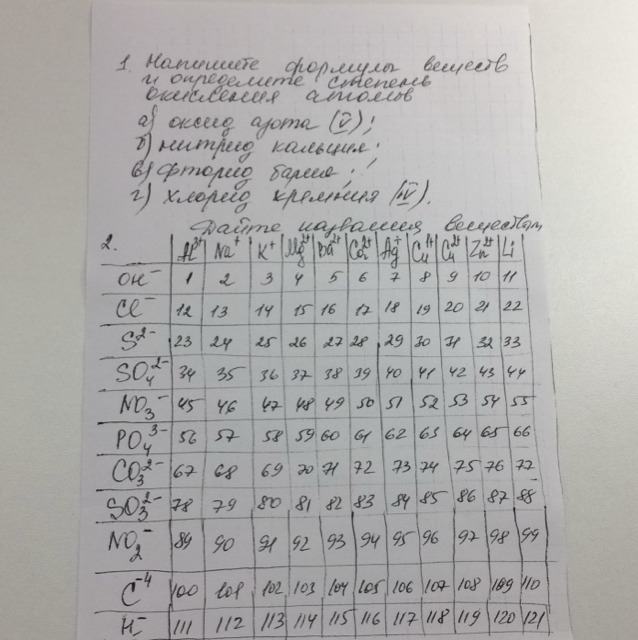 1. Напишите формулы веществ
и определите степень
окисления атомов
а) оксид азота (V);
б) нитрид кальция;
в) фторид бария;
г) хлорид кремния (IV).
Дайте названия веществам
2. Al³⁺ Na⁺ K⁺ Mg²⁺ Ba²⁺ Ca²⁺ Ag⁺ Cu¹⁺ Cu²⁺ Zn²⁺ Li
OH⁻ 1 2 3 4 5 6 7 8 9 10 11
Cl⁻ 12 13 14 15 16 17 18 19 20 21 22
S²⁻ 23 24 25 26 27 28 29 30 31 32 33
SO₄²⁻ 34 35 36 37 38 39 40 41 42 43 44
NO₃⁻ 45 46 47 48 49 50 51 52 53 54 55
PO₄³⁻ 56 57 58 59 60 61 62 63 64 65 66
CO₃²⁻ 67 68 69 70 71 72 73 74 75 76 77
SO₃²⁻ 78 79 80 81 82 83 84 85 86 87 88
NO₂⁻ 89 90 91 92 93 94 95 96 97 98 99
C⁻⁴ 100 101 102 103 104 105 106 107 108 109 110
H⁻ 111 112 113 114 115 116 117 118 119 120 121